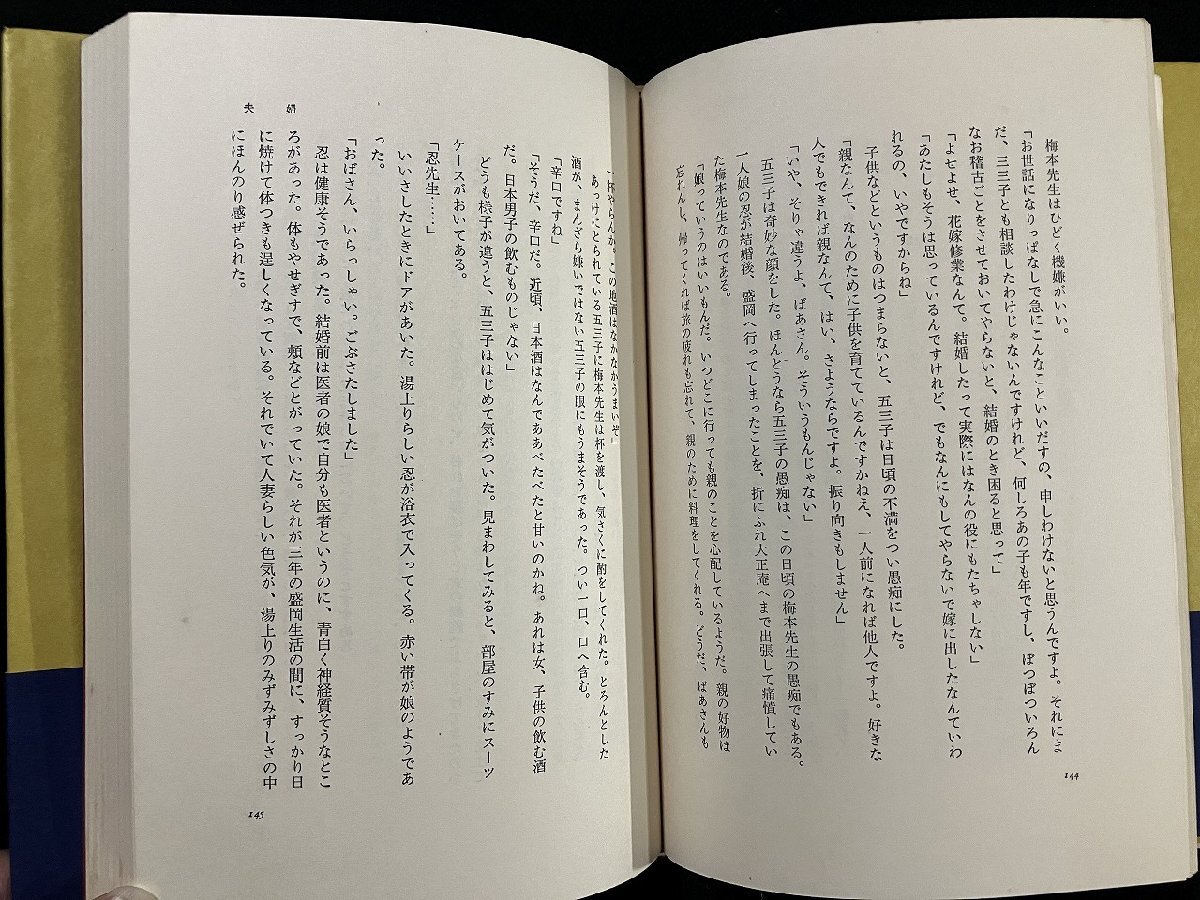 梅本先生はひどく機嫌がいい。
「お世話になりっぱなしで急にこんなこといいだすの、申しわけないと思うんですよ。それにま
だ、三三子とも相談したわけじゃないんですけれど、何しろあの子も年ですし、ぼつぼついろん
なお稽古ごとをさせておいてやらないと、結婚のとき困ると思って」
「よせよせ、花嫁修業なんて。結婚したって実際にはなんの役にもたちゃしない」
「あたしもそうは思っているんですけれど、でもなんにもしてやらないで嫁に出したなんていわ
れるの、いやですからね」
子供などというものはつまらないと、五三子は日頃の不満をつい愚痴にした。
「親なんて、なんのために子供を育てているんですかねえ、一人前になれば他人ですよ。好きな
人でもできれば親なんて、はい、さようならですよ。振り向きもしません」
「いや、そりゃ違うよ、ばあさん。そういうもんじゃない」
五三子は奇妙な顔をした。ほんとうなら五三子の愚痴は、この日頃の梅本先生の愚痴でもある。
一人娘の忍が結婚後、盛岡へ行ってしまったことを、折にふれ大正庵へまで出張して痛憤してい
た梅本先生なのである。
「娘っていうのはいいもんだ。いつどこに行っても親のことを心配しているようだ。親の好物は
忘れんし、帰ってくれば旅の疲れも忘れて、親のために料理をしてくれる。どうだ、ばあさんも
144
夫婦
一杯やらんか。この地酒はなかなかうまいぞ」
あっけにとられている五三子に梅本先生は杯を渡し、気さくに酌をしてくれた。とろんとした
酒が、まんざら嫌いではない五三子の眼にもうまそうであった。つい一口、口へ含む。
「辛口ですね」
「そうだ、辛口だ。近頃、日本酒はなんでああべたべたと甘いのかね。あれは女、子供の飲む酒
だ。日本男子の飲むものじゃない」
どうも様子が違うと、五三子ははじめて気がついた。見まわしてみると、部屋のすみにスーツ
ケースがおいてある。
「忍先生……」
いいさしたときにドアがあいた。湯上りらしい忍が浴衣で入ってくる。赤い帯が娘のようであ
った。
「おばさん、いらっしゃい。ごぶさたしました」
忍は健康そうであった。結婚前は医者の娘で自分も医者というのに、青白く神経質そうなとこ
ろがあった。体もやせぎすで、頬などとがっていた。それが三年の盛岡生活の間に、すっかり日
に焼けて体つきも逞しくなっている。それでいて人妻らしい色気が、湯上りのみずみずしさの中
にほんのり感ぜられた。
145